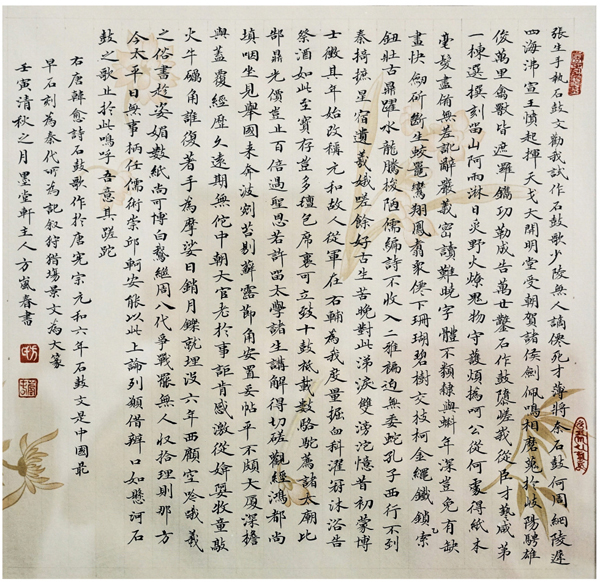 張生手執石鼓文勸我試作石鼓歌少陵無人謫僊死才薄將奈石鼓何周綱陵遲
四海沸宣王憤起揮天戈大開明堂受朝賀諸侯劍佩鳴相磨蒐於岐陽騁雄
俊萬里禽獸皆遮羅鐫功勒成告萬世鑿石作鼓隳嵯峨從臣才藝咸第
一揀選撰刻留山阿雨淋日炙野火燎鬼物守護煩撝呵公從何處得紙本
毫髮盡備無差訛辭嚴義密讀難曉字體不類隸與蝌年深豈免有缺
畫快劍斫斷生蛟鼉鸞翔鳳翥眾僊下珊瑚碧樹交枝柯金繩鐵鎖索
鈕壯古鼎躍水龍騰梭陋儒編詩不收入二雅褊迫無委蛇孔子西行不到
秦掎摭星宿遺羲娥嗟餘好古生苦晚對此涕淚雙滂沱憶昔初蒙博
士徵其年始改稱元和故人從軍在右輔為我度量掘臼科濯冠沐浴告
祭酒如此至寶存豈多氈包席裹可立致十鼓祗載數駱駝薦諸太廟比
郜鼎光價豈止百倍過聖恩若許留太學諸生講解得切磋觀經鴻都尚
填咽坐見舉國來奔波剜苔剔蘚露節角安置妥帖平不頗大廈深檐
與蓋覆經歷久遠期無佗中朝大官老於事詎肯感激徒媕婀牧童敲
火牛礪角誰復著手為摩挲日銷月鑠就埋沒六年西顧空吟哦羲
之俗書趁姿媚數紙尚可博白鵝繼周八代爭戰罷無人收拾理則那方
今太平日無事柄任儒術崇邱軻安能以此上論列願借辯口如懸河石
鼓之歌止於此嗚呼吾意其蹉跎
右唐韓愈詩石鼓歌作於唐憲宗元和六年石鼓文是中國最
早石刻為秦代所為記叙狩獵場景文為大篆
壬寅清秋之月墨堂軒主人方嵐春書